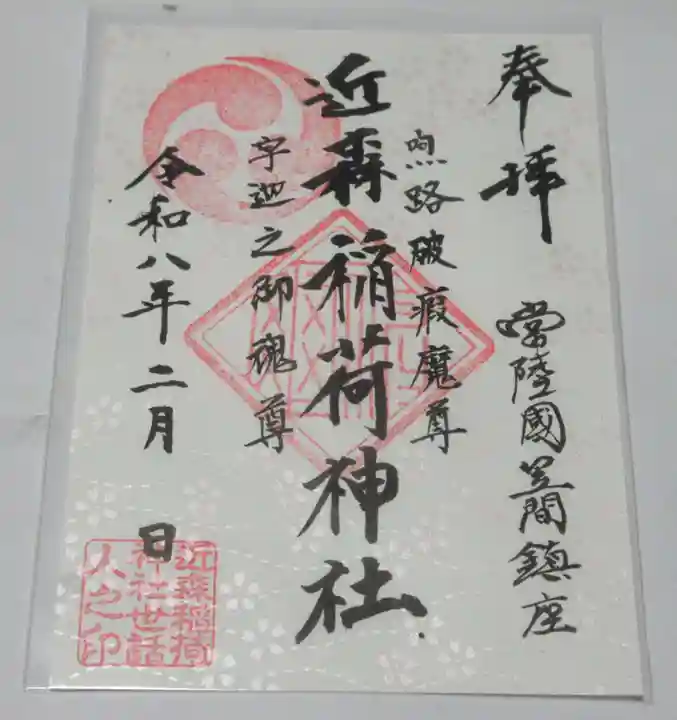 奉拝
常陸國笠間鎮座
喣路破瘕魔尊
近森稲荷神社
宇迦之御魂尊
令和八年二月 日
近森稲荷
神社世話
人之印